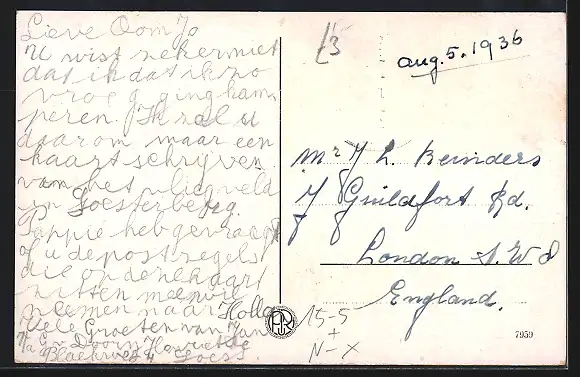 Lieve Oom Jo
U wist zeker niet
dat ik dat ik zo
vroeg ging kam
peren. Ik zal u
daarom maar een
kaart schrijven
van het vliegveld
in Soesterberg.
Pappie heb gevraagt
of u de postzegels
die op deze kaart
zitten mee wil
nemen naar Holla
Vele Groeten van Jan
v. Doorn
Soest
£3
aug. 5. 1936
Mr J L. Reinders
7 Guildfort Rd.
London S.W 8
England.
15-5
+
N-X
7959